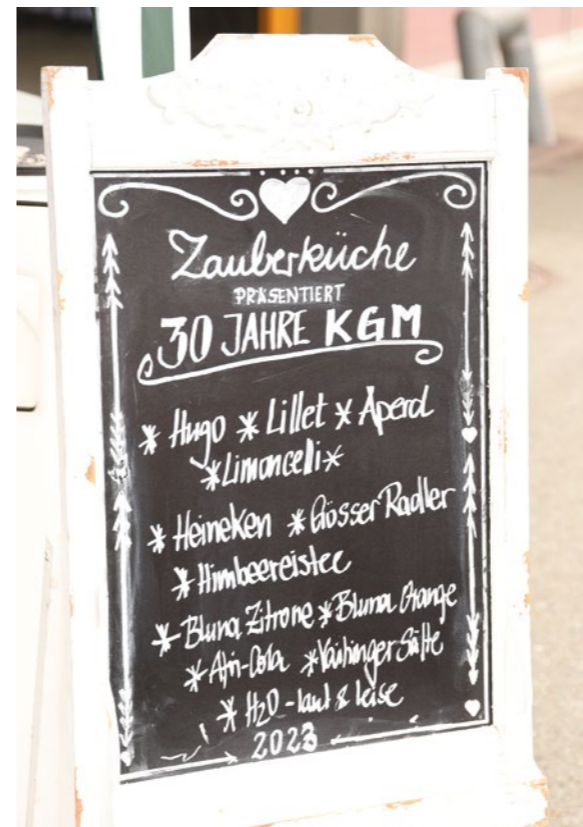 Zauberküche
PRÄSENTIERT
30 JAHRE KGM
* Hugo * Lillet * Aperol
*Limoncelli*
* Heineken * Gösser Radler
* Himbeereistee
* Bluna Zitrone * Bluna Orange
* Afri-Cola * Vaihinger Säfte
* H2O - laut & leise
2023